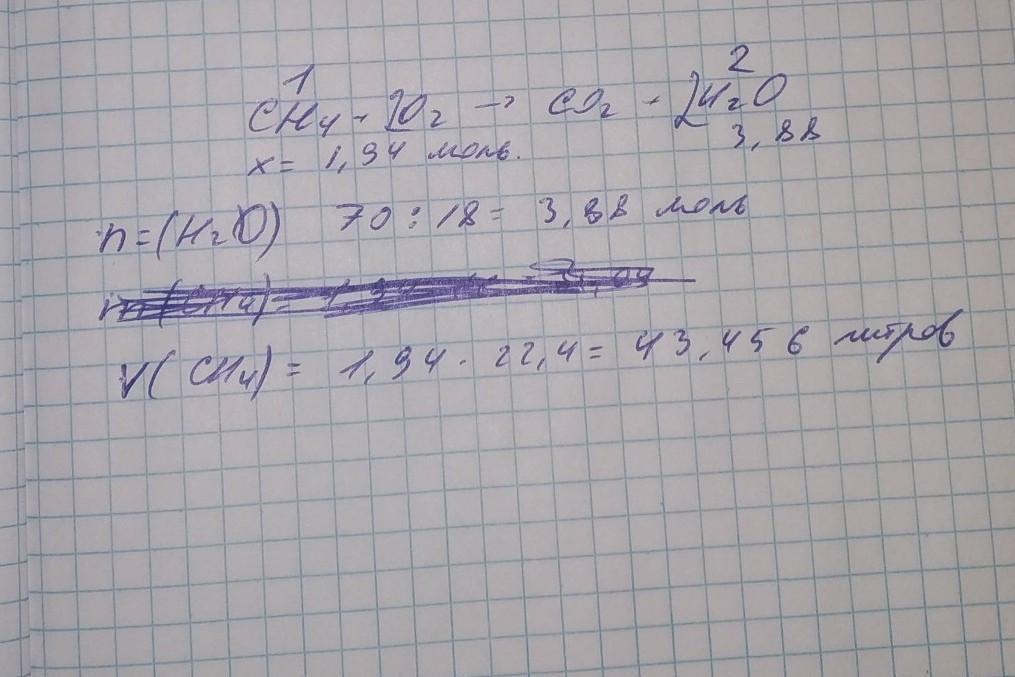 1 2
CH₄ + 2O₂ → CO₂ + 2H₂O
x = 1,94 моль. 3,88
n = (H₂O) 70 : 18 = 3,88 моль
V(CH₄) = 1,94 · 22,4 = 43,456 литров